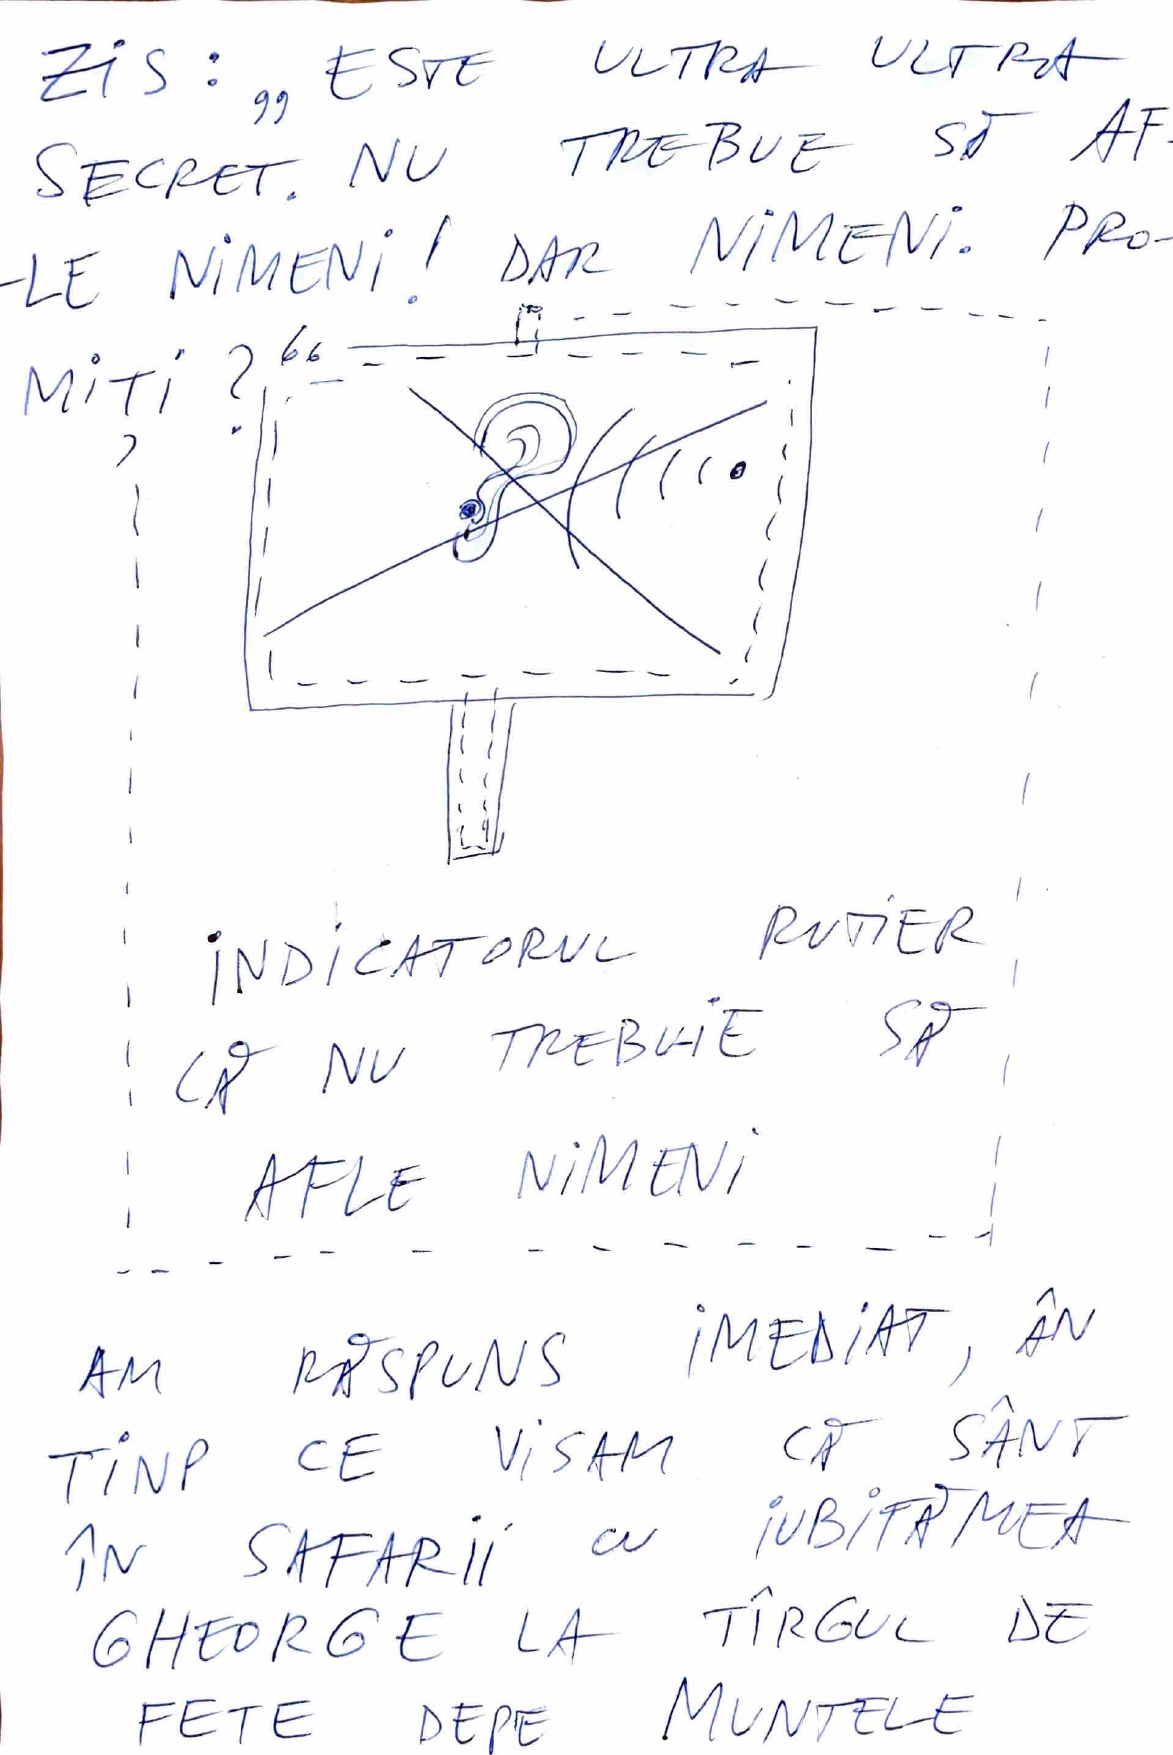 ZiS: „ESTE ULTRA ULTRA
SECRET. NU TREBUE SĂ AF-
-LE NiMENi! DAR NiMENi. PRO-
MiTi?“
iNDiCATORUL RUTiER
CĂ NU TREBUiE SĂ
AFLE NiMENi
AM RĂSPUNS iMEDiAT, ÂN
TiNP CE ViSAM CĂ SÂNT
ÎN SAFARii CU iUBiTĂMEA
GHEORGE LA TÎRGUL DE
FETE DEPE MUNTELE